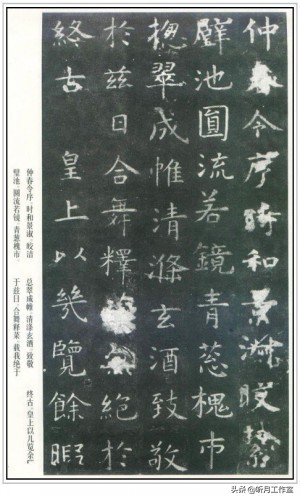 仲春令序時和景淑
璧池圓流若鏡青葱槐市
摠翠成帷清滌玄酒致敬
於兹日合舞釋絕於
終古 皇上以幾覽餘暇
仲春令序,时和景淑,皎洁
璧池,圆流若镜,青葱槐市,
总翠成帷,清涤玄酒,致敬
于兹日,合舞释菜,绝于
终古。皇上以几览余
头条 @听月工作室